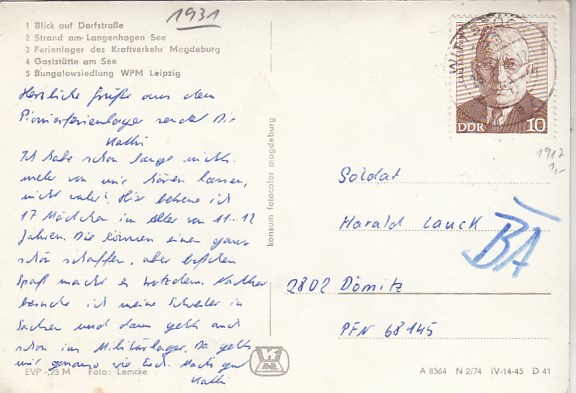 1931
1 Blick auf Dorfstraße
2 Strand am Langenhagen See
3 Ferienlager des Kraftverkehr Magdeburg
4 Gaststätte am See
5 Bungalowsiedlung WPM Leipzig
Herzliche Grüße aus dem
Pionierferienlager sendet Dir
Kathi
Ich habe schon lange nichts
mehr von mir hören lassen,
nicht wahr? Hier betreue ich
17 Mädchen im Alter von 11-12
Jahren. Die können einen ganz
schön schaffen, aber bißchen
Spaß macht es trotzdem. Nachher
besuche ich meine Schwester in
Sachsen und dann geht's auch
schon ins Militärlager. Da geht's
mir genauso wie Euch. Machs gut
Kathi
EVP -,25 M Foto: Lemcke
konsum fotocolor magdeburg
DDR 10
1917
1,-
Soldat
Harald Lauck
BA
2802 Dömitz
PFN 68145
A 8564 N 2/74 IV-14-45 D 41